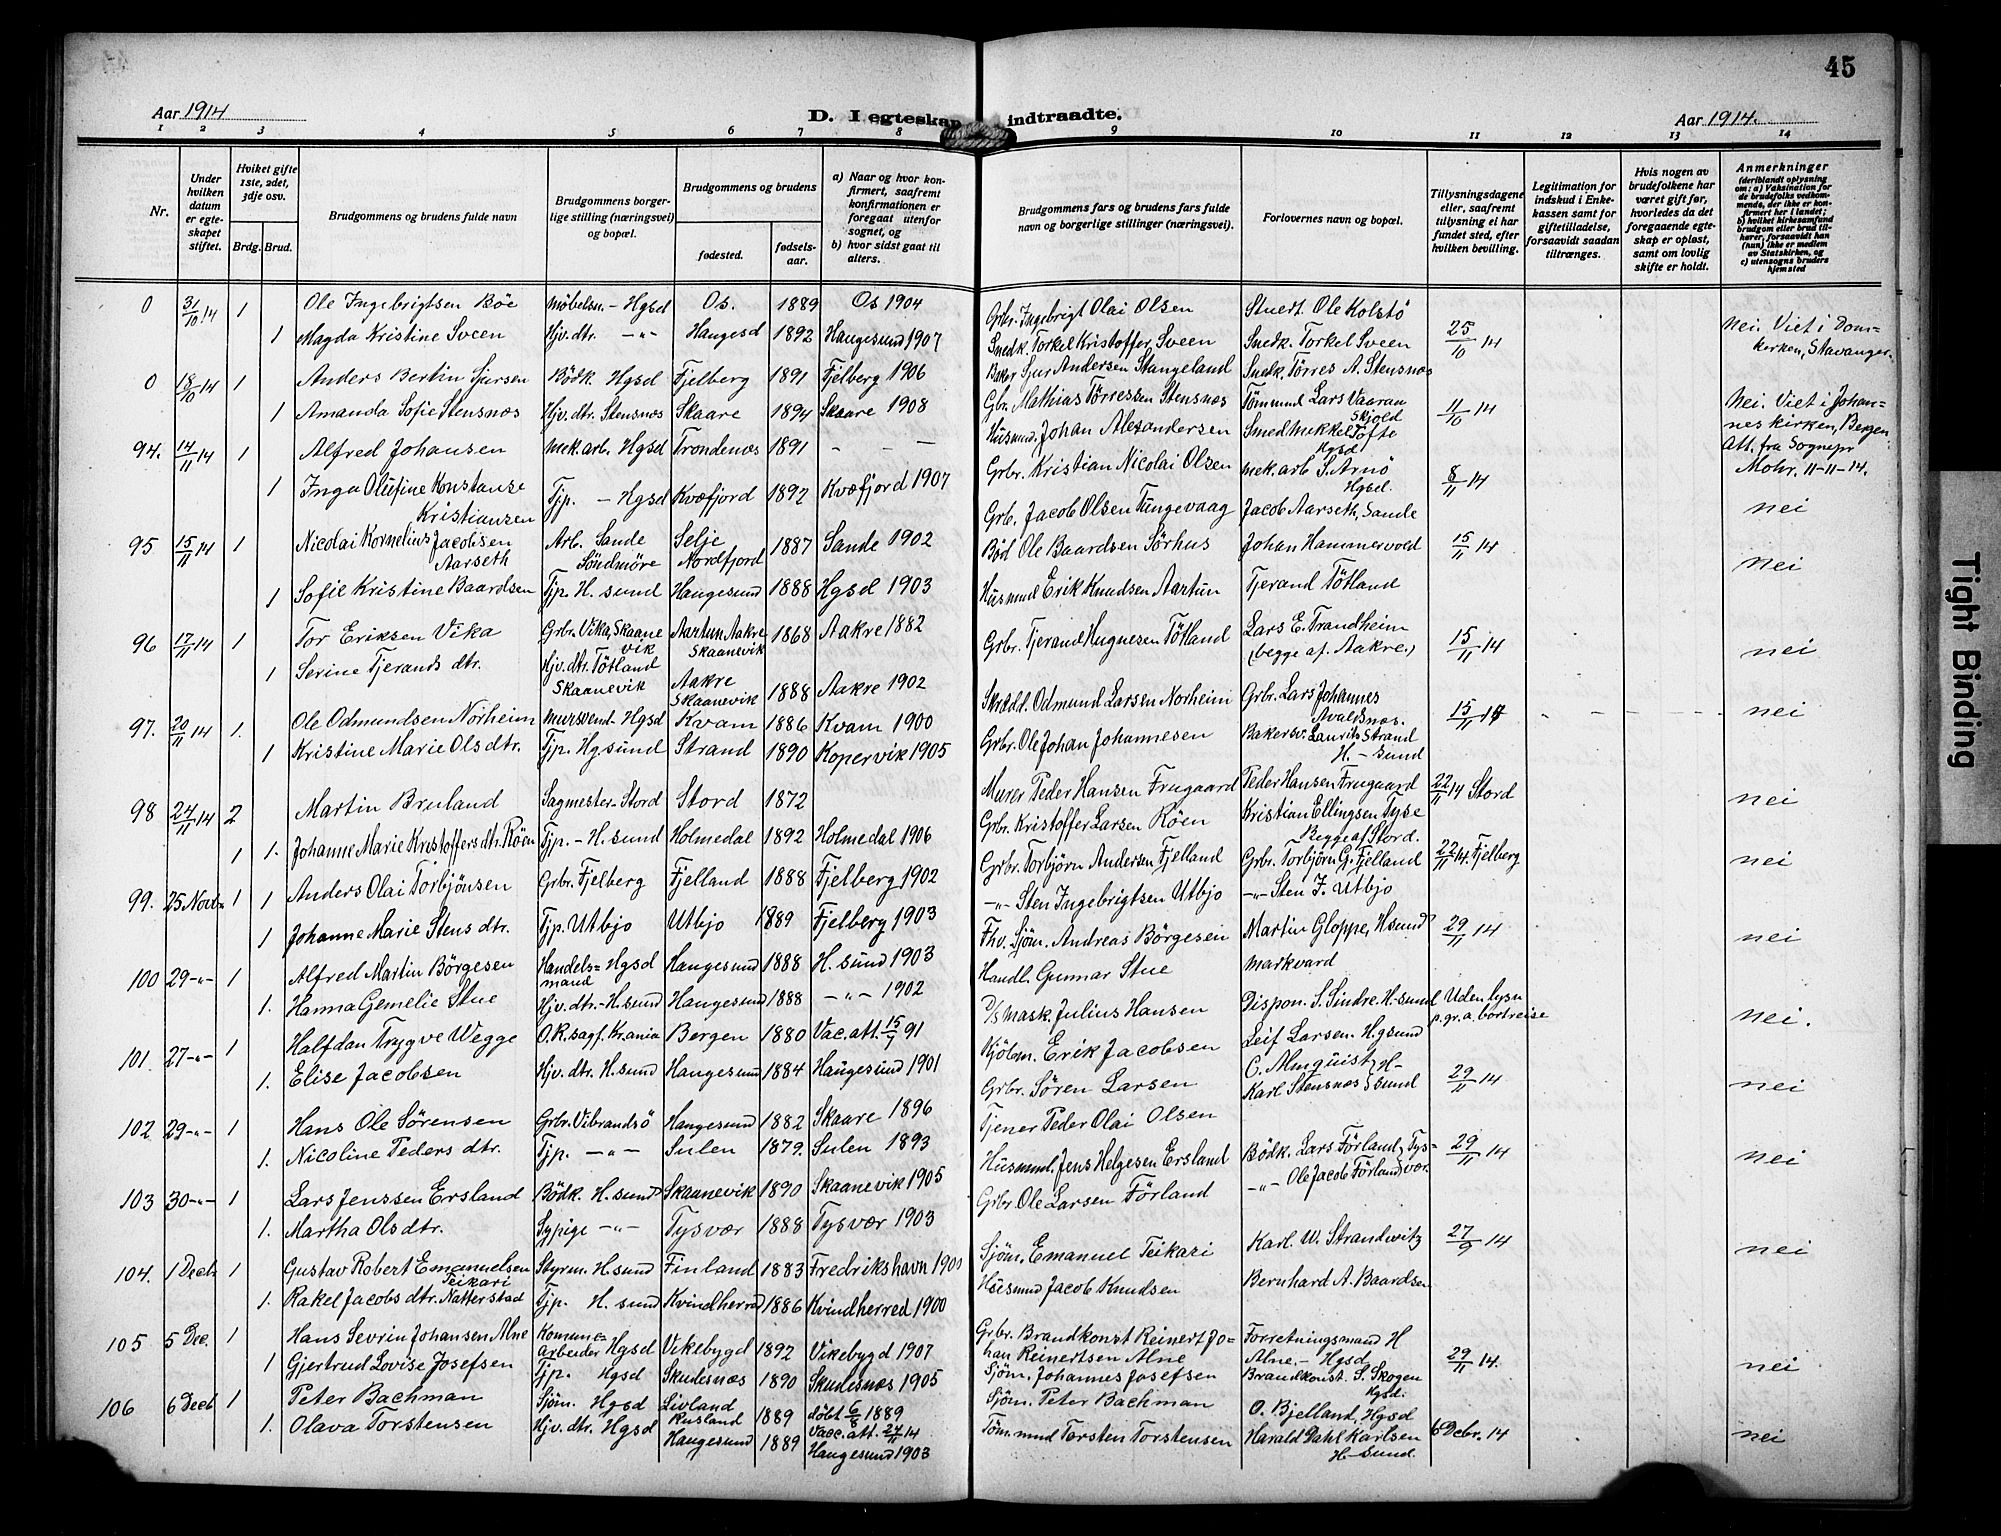 45
Aar 1914
D. I egteskap indtraadte.
Aar 1914.
1 2 3 4 5 6 7 8 9 10 11 12 13 14
Nr.
Under hvilken datum er egteskapet stiftet.
Hviket gifte 1ste, 2det, 3dje osv.
Brdg. Brud.
Brudgommens og brudens fulde navn
Brudgommens borgerlige stilling (næringsvei) og bopæl.
Brudgommens og brudens
fødested.
fødselsaar.
a) Naar og hvor konfirmert, saafremt konfirmationen er foregaat utenfor sognet, og
b) hvor sidst gaat til alters.
Brudgommens fars og brudens fars fulde navn og borgerlige stillinger (næringsvei).
Forlovernes navn og bopæl.
Tillysningsdagene eller, saafremt tillysning ei har fundet sted, efter hvilken bevilling.
Legitimation for indskud i Enkekassen samt for giftetilladelse, forsaavidt saadan tiltrænges.
Hvis nogen av brudefolkene har været gift før, hvorledes da det foregaaende egteskap er opløst, samt om lovlig skifte er holdt.
Anmerkninger
(deriblandt oplysning om: a) Vaksination for de brudefolks vedkommende, der ikke er konfirmert her i landet; b) hvilket kirkesamfund brudgom eller brud tilhører, forsaavidt han (hun) ikke er medlem av Statskirken, og c) utensogns bruders hjemsted
0 31/10 14 1 Ole Ingebrigtsen Böe Möbelsn. - Hgsd Os. 1889 Os 1904 Grbr. Ingebrigt Olai Olsen Stuert. Ole Kolstö
1 Magda Kristine Sveen Hjv. dtr. -"- Haugesd 1892 Haugesund 1907 Snedk. Torkel Kristoffer Sveen Snedk. Torkel Sveen 25/10 14 Nei. Viet i Domkirken, Stavanger.
0 18/10 14 1 Anders Bertin Sjursen Bödk. Hgsd Fjelberg 1891 Fjelberg 1906 Baker Sjur Andersen Stangeland Snedk. Törres A. Stensnæs
1 Amanda Sofie Stensnæs Hjv. dtr. Stensnæs Skaare 1894 Skaare 1908 Gbr. Mathias Törressen Stensnæs Tömmmd Lars Vaaran Skjold 11/10 14 Nei. Viet i Johanneskirken, Bergen
94. 14/11 14 1 Alfred Johansen Mek. arb. Hgsd Trondenæs 1891 - - Husmnd. Johan Alexandersen Smed Mekkel Tofte Hgsd Att. fra Sognepr Mohr. 11-11-14.
1 Inga Olufine Konstanse Kristiansen Tjp. - Hgsd Kvæfjord 1892 Kvæfjord 1907 Grbr. Kristian Nicolai Olsen Mek. arb S. Arnö Hgsd. 8/11 14 nei
95 15/11 14 1 Nicolai Kornelius Jacobsen Aarseth Arb. Sande Söndmöre Selje Nordfjord 1887 Sande 1902 Grb. Jacob Olsen Tungevaag Jacob Aarseth, Sande
1 Sofie Kristine Baardsen Tjp. H. sund Haugesund 1888 Hgsd 1903 Böd Ole Baardsen Sörhus Johan Hammervold 15/11 14 nei
96 17/11 14 1 Tor Eriksen Vika Grbr. Vika, Skaanevik Aartun Aakre Skaanevik 1868 Aakre 1882 Husmnd Erik Knudsen Aartun Tjerand Tötland
1 Serine Tjerands dtr. Hjv. dtr. Tötland Skaanevik Aakre Skaanevik 1888 Aakre 1902 Grbr. Tjerand Hugnesen Tötland Lars E. Trandheim (begge af Aakre) 15/11 14 nei
97. 20/11 14 1. Ole Odmundsen Norheim Mursvend. Hgsd Kvam 1886 Kvam 1900 Skrædd. Odmund Larsen Norheim Grbr. Lars Johannes Avaldsnæs.
1 Kristine Marie Olsdtr. Tjp. Hgsund Strand 1890 Kopervik 1905 Grbr. Ole Johan Johannesen Bakersv. Laurits Strand H.-sund 15/11 14 nei
98 24/11 14 2 Martin Bruland Sagmester. Stord Stord 1872 Murer Peder Hansen Frugaard Peder Hansen Frugaard 22/11 14 Stord nei
1 1. Johanne Marie Kristoffersdtr. Röen Tjp. - H. sund Holmedal 1892 Holmedal 1906 Grbr. Kristoffer Larsen Röen Kristian Ellingsen Tyse Begge af Stord.
99. 25 Novbr 1 1 Anders Olai Torbjönsen Grbr. Fjelberg Fjelland 1888 Fjelberg 1902 Grbr. Torbjörn Andersen Fjelland Grbr. Torbjörn G. Fjelland 22/11 14. Fjelberg nei
1 Johanne Marie Stens dtr. Tjp. Utbjo Utbjo 1889 Fjelberg 1903 -"- Sten Ingebrigtsen Utbjo -"- Sten J. Utbjo
100 29-"- 1 Alfred Martin Börgesen Handelsmand Hgsd Haugesund 1888 H. sund 1903 Fhv. Sjöm. Andreas Börgesen Martin Gloppe, H sund 29/11 14 nei
1. Hanna Gemelie Stue Hjv. dtr. - H. sund Haugesund 1888 -"- 1902 Handl. Gunnar Stue Markvard
101. 27-"- 1 Halfdan Trygve Wegge O.R. sagf. Kr.ania Bergen 1880 Vac. att. 15/9 91 D/s Mask. Julius Hansen Dispon. S. Sindre. H-sund Uden lysn p. gr. a. bortreise nei.
1. Elise Jacobsen Hjv. dtr. H. sund Haugesund 1884 Haugesund 1901 Kjöbm. Erik Jacobsen Leif Larsen. H.gsund
102 29-"- 1 Hans Ole Sörensen Grbr. Vibrandsö Haugesund 1882 Skaare 1896 Grbr. Sören Larsen C. Almquist H- Karl Stensnæs sund 29/11 14 nei
1. Nicoline Peders dtr. Tjp. -"- Sulen 1879. Sulen 1893 Tjener Peder Olai Olsen
103 30-"- 1 Lars Jenssen Ersland Bödk. H. sund Skaanevik 1890 Skaanevik 1905 Husmnd. Jens Helgesen Ersland Bödk. Lars Förland, Tys- 29/11 14 nei
1. Martha Olsdtr. Sypige -"- Tysvær 1888 Tysvær 1903 Grbr. Ole Larsen Förland -"- Ole Jacob Förland vær.
104. 1 Decb 1 Gustav Robert Emanuelsen Teikari Styrm. H. sund Finland 1883 Fredrikshavn 1900 Sjöm. Emanuel Teikari Karl. W. Strandwitz 27/9 14 nei
1. Rakel Jacobs dtr. Natterstad Tjp. H. sund Kvindherred 1886 Kvindherred 1900 Husmnd Jacob Knudsen Bernhard A. Baardsen
105 5 Dec. 1 Hans Sevrin Johansen Alne Komunearbeider Hgsd Vikebygd 1892 Vikebygd 1907 Grbr. Brandkonst Reinert Johan Reinertsen Alne Forretningsmand H Alne. - Hgsd
1 Gjertrud Lovise Josefsen Tjp. Hgsd Skudesnæs 1890 Skudesnæs 1905 Sjöm. Johannes Josefsen Brandkonst. S. Skogen Hgsd. 29/11 14. nei
106 6 Decb 1 Peter Bachman Sjöm. Hgsd Livland Rusland 1889 döbt 6/8 1889 Vacc. att. 24/11 14 Sjöm. Peter Bachman O. Bjelland, Hgsd
1. Olava Torstensen Hjv. dtr. Hgsd Haugesund 1889 Haugesund 1903 Tömmmd Torsten Torstensen Harald Dahl Karlsen H-sund. 6 Debr. 14 nei
Tight Binding